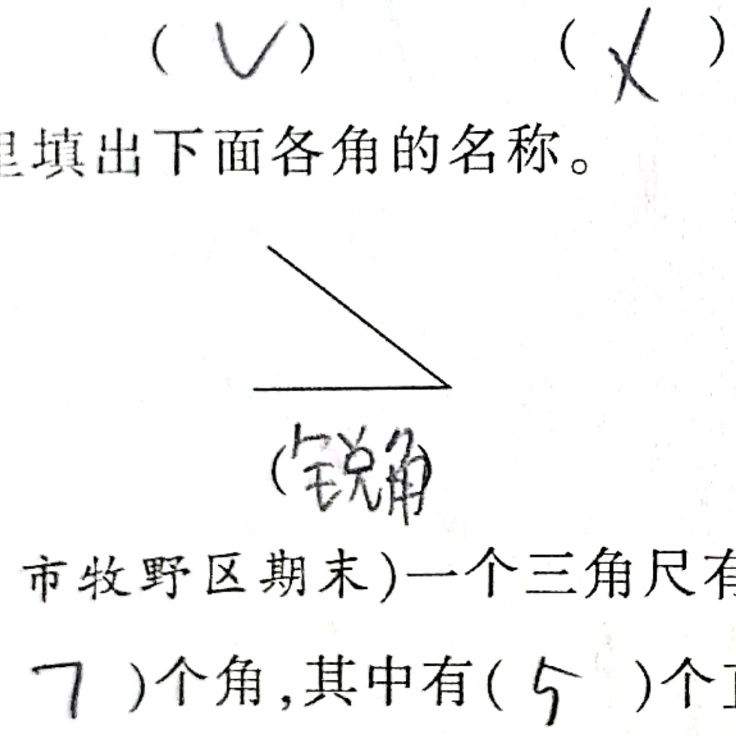 ( √ ) ( × )
里填出下面各角的名称。
(锐角)
市牧野区期末)一个三角尺有
7 )个角,其中有( 5 )个